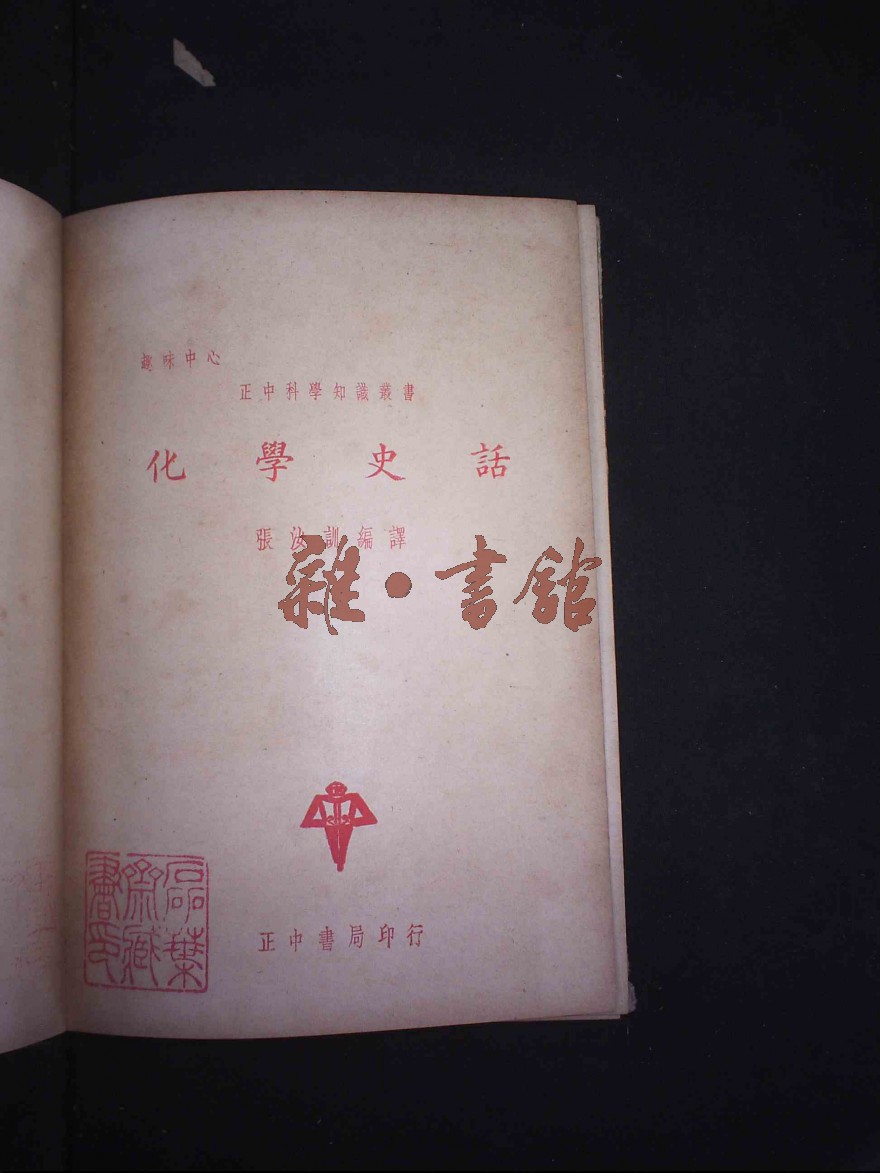 趣味中心
正中科學知識叢書
化學史話
張汝訓編譯
雜·書館
正中書局印行